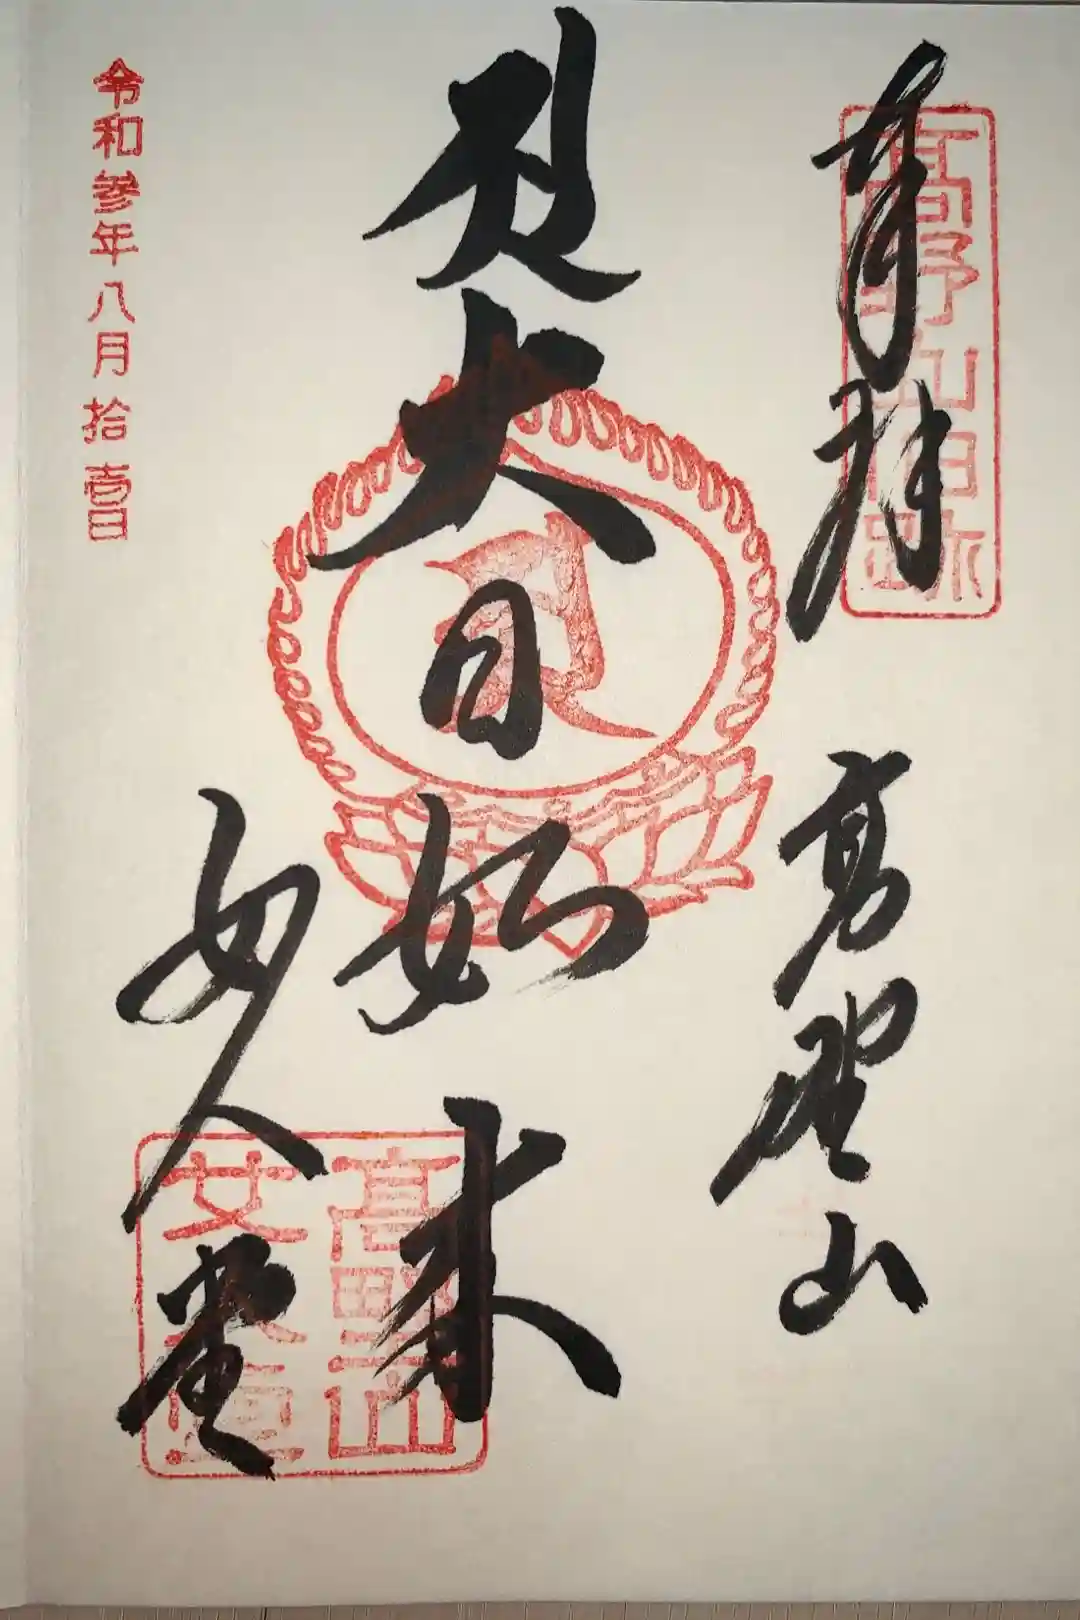 奉拝
高野山
高野山旧跡
大日如来
女人堂
高野山
女人堂
令和参年八月拾壹日